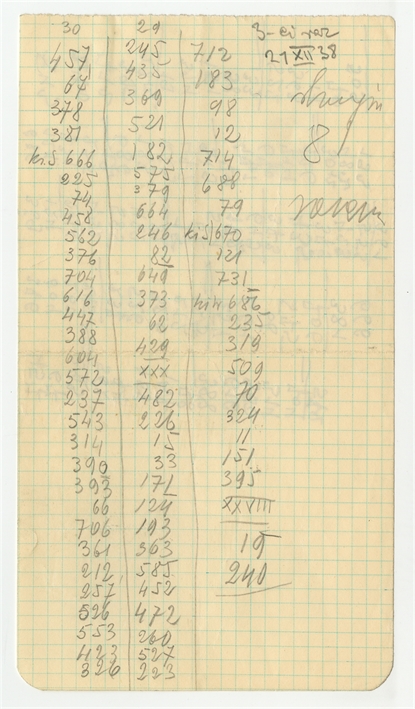 30
457
67
378
381
kiš 666
225
74
458
562
376
704
616
447
388
604
572
237
543
314
390
393
66
706
361
212
257
526
553
423
326
29
245
435
369
521
182
575
379
664
246
82
649
373
62
429
XXX
482
226
15
33
171
124
193
363
585
452
472
260
527
223
712
183
98
12
714
688
79
kiš 670
121
731
686
235
319
509
70
324
11
151
395
XXVIII
19
240
3-ci raz
21 XII 38
8